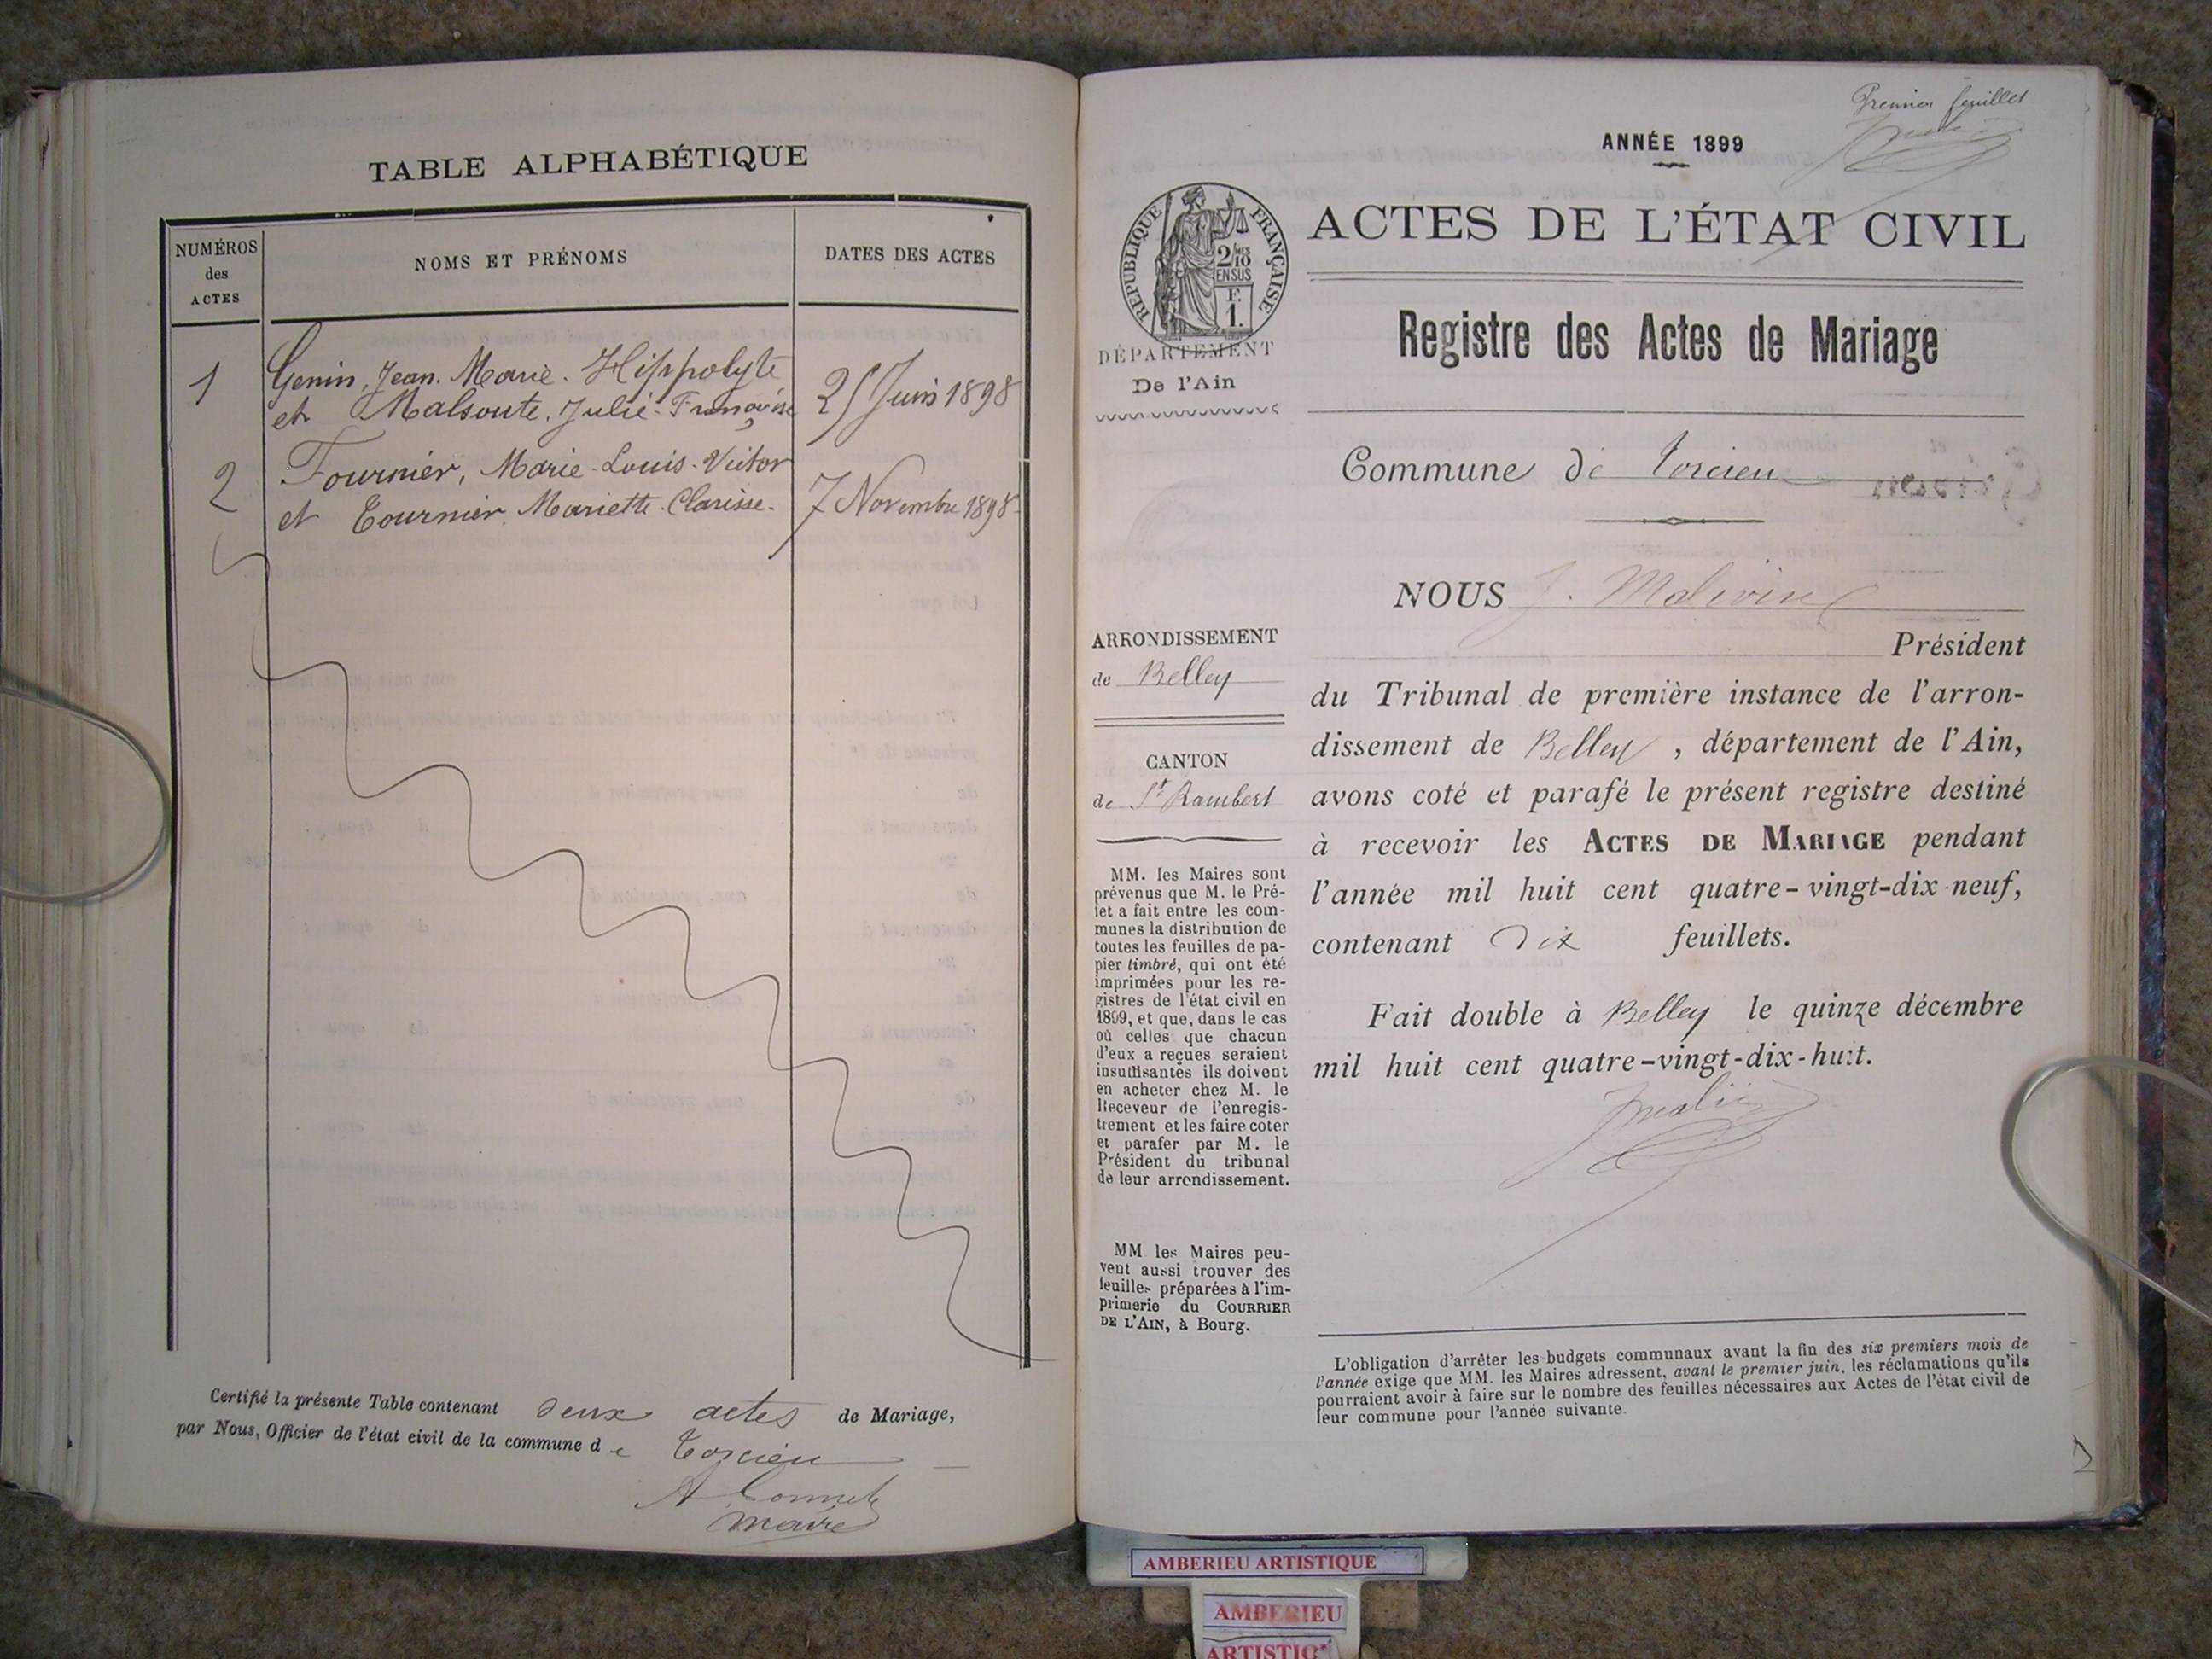 TABLE ALPHABÉTIQUE
NUMÉROS
des
ACTES
NOMS ET PRÉNOMS
DATES DES ACTES
1
Genin, Jean. Marie. Hippolyte
et Malsoute. Julie-Françoise
25 Juin 1898
2
Fournier, Marie-Louis-Victor
et Tournier Mariette-Clarisse.
7 Novembre 1898
Certifié la présente Table contenant deux actes de Mariage,
par Nous, Officier de l'état civil de la commune de Torcieu
A Bonnet
Maire
Premier feuillet
ANNÉE 1899
RÉPUBLIQUE FRANÇAISE
2/10
EN SUS
F.
1.
DÉPARTEMENT
De l'Ain
ACTES DE L'ÉTAT CIVIL
Registre des Actes de Mariage
Commune de Torcieu
ARRONDISSEMENT
de Belley
CANTON
de St Rambert
MM. les Maires sont
prévenus que M. le Pré-
fet a fait entre les com-
munes la distribution de
toutes les feuilles de pa-
pier timbré, qui ont été
imprimées pour les re-
gistres de l'état civil en
1899, et que, dans le cas
où celles que chacun
d'eux a reçues seraient
insuffisantes ils doivent
en acheter chez M. le
Receveur de l'enregis-
trement et les faire coter
et parafer par M. le
Président du tribunal
de leur arrondissement.
MM les Maires peu-
vent aussi trouver des
feuilles préparées à l'im-
primerie du COURRIER
DE L'AIN, à Bourg.
NOUS J.
Président
du Tribunal de première instance de l'arron-
dissement de Belley, département de l'Ain,
avons coté et parafé le présent registre destiné
à recevoir les ACTES DE MARIAGE pendant
l'année mil huit cent quatre-vingt-dix-neuf,
contenant Dix feuillets.
Fait double à Belley le quinze décembre
mil huit cent quatre-vingt-dix-huit.
L'obligation d'arrêter les budgets communaux avant la fin des six premiers mois de
l'année exige que MM. les Maires adressent, avant le premier juin, les réclamations qu'ils
pourraient avoir à faire sur le nombre des feuilles nécessaires aux Actes de l'état civil de
leur commune pour l'année suivante.
AMBERIEU ARTISTIQUE
AMBERIEU
ARTISTIQ